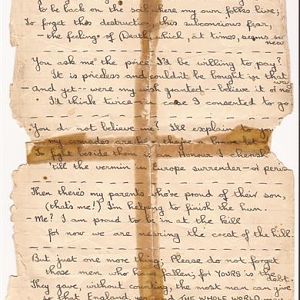 to be back on the soil where my own folks live;
To forget this destruction, this subconscious fear,
- the feeling of Death which, at times, seems so near
You ask me the price I'd be willing to pay?
It is priceless and couldn't be bought in that way
- and yet - were my wish granted - believe it or no
I'd think twice e'er I consented to go.
You do not believe me? I'll explain to you
my comrades are
To fight beside them is Honour I cherish
'till the vermin Europe surrender - or perish
Then there's my parents who're proud of their son,
(that's me!) I'm helping to finish the hun.
- Me? I am proud to be in at the kill
for now we are nearing the crest of the hill
But just one more thing; Please do not forget
those men who have fallen; for YOURS is the debt.
They gave, without counting, the most man can give
so that England and THE WHOLE WORLD